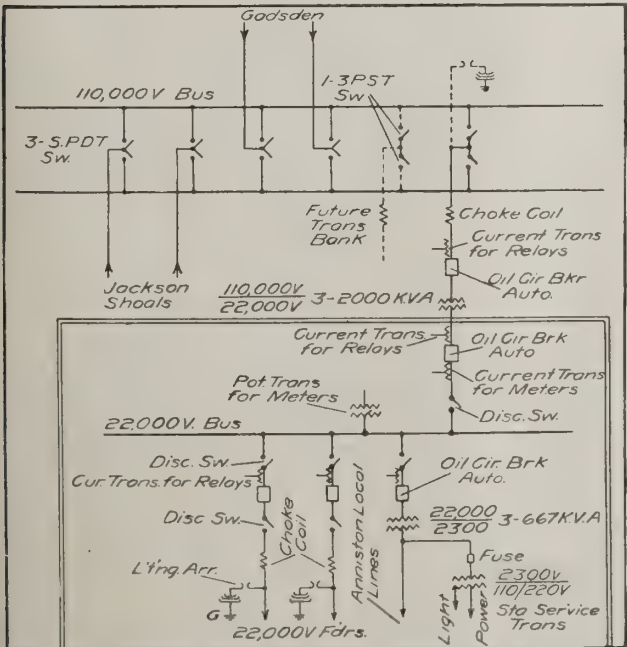 Gadsden
1-3PST
Sw
110,000V Bus
3-S.PDT
Sw.
Future
Trans
Bank
Choke Coil
Current Trans
for Relays
Jackson
Shoals
110,000V
22,000V
3-2000 KVA
Oil Cir Bkr
Auto.
Current Trans
for Relays
Oil Cir Brk
Auto
Current Trans
for Meters
Pot Trans
for Meters
Disc. Sw.
22,000V. Bus
Disc. Sw.
Cur. Trans. for Relays
Oil Cir. Brk
Auto.
Disc Sw.
Choke
Coil
Anniston Local
Lines
22,000
2300
3-667K.V.A
Fuse
L't'ng. Arr.
2300v
110/220V
Light
Power
Sta Service
Trans
G
22,000V Fdrs.